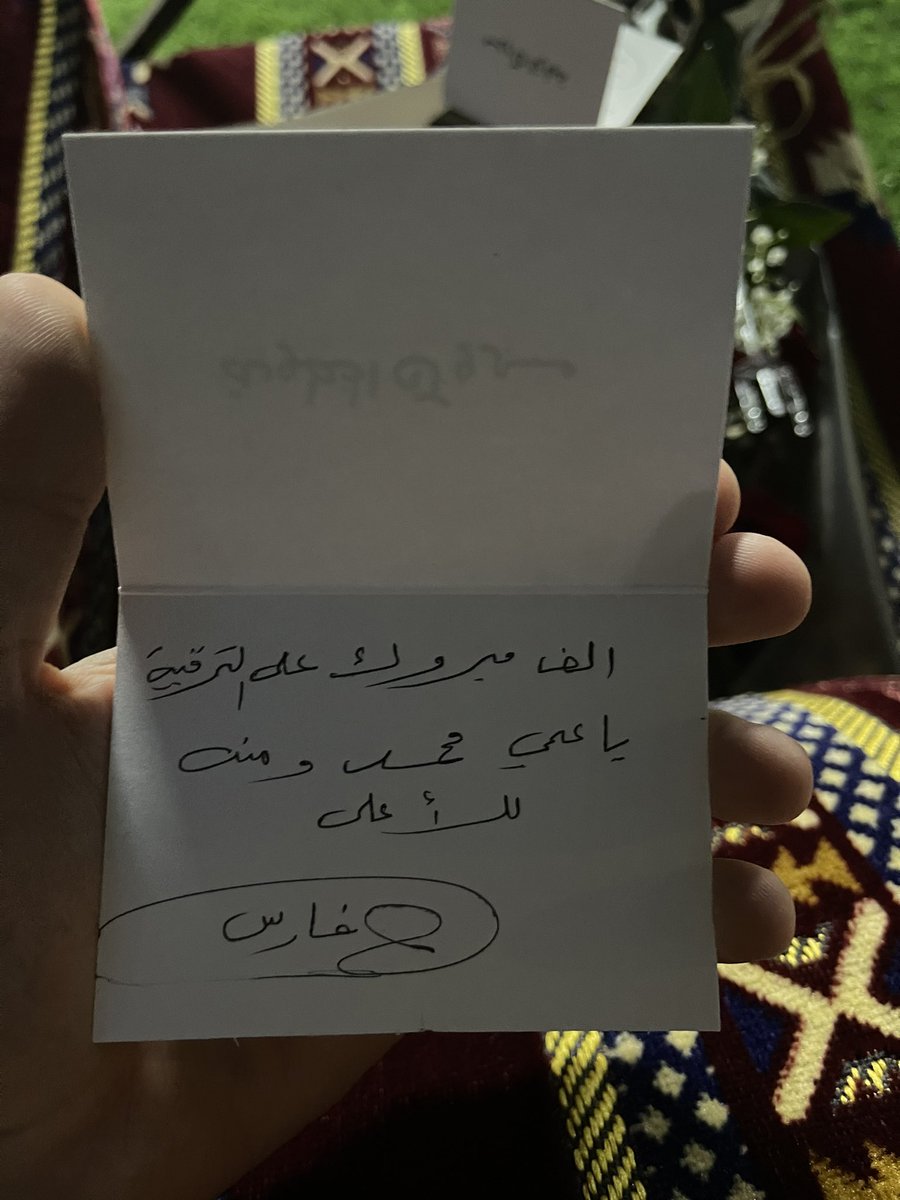 الف مبروك على الترقية
يا عمي محمد ومنه
للأعلى
فارس